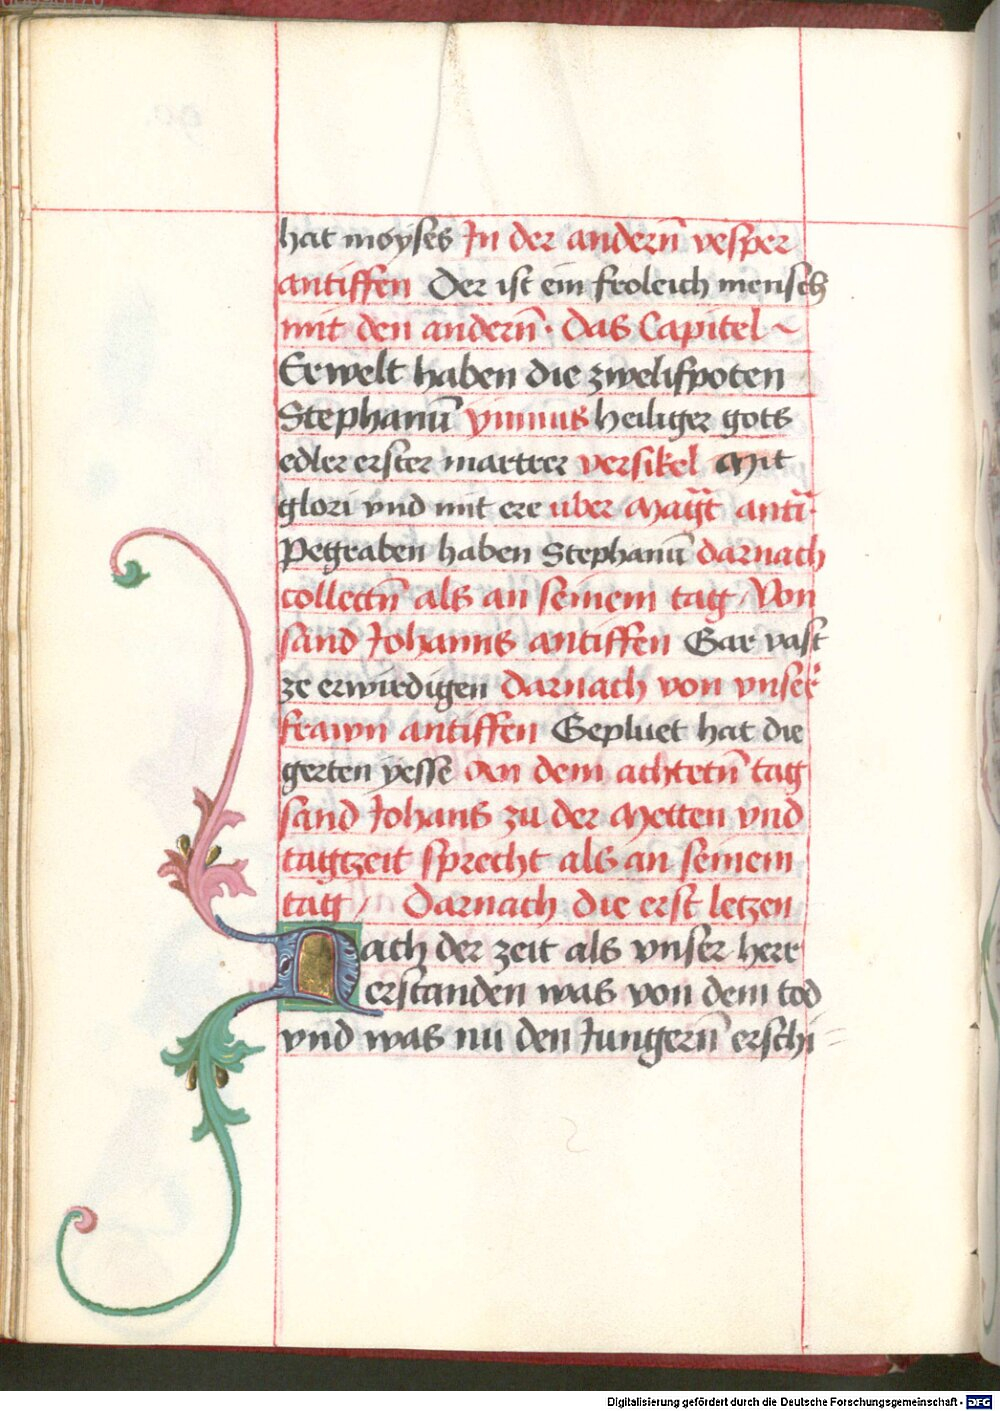 hat moyses In der andern̄ vesper
antiffen Der ist ein froleich mensch
mit den andern̄· das Capitel ~
Erwelt haben die zwelifpoten
Stephanū ymnus heiliger gots
edler erster martrer versikel Mit
glori vnd mit ere uber Mag̃t anti᷑·
Pegraben haben Stephanū darnach
collectn̄ als an seinem tag / Von
sand Johanns antiffen Gar vast
ze erwirdigen darnach von vnser̄
frawn antiffen Gepluet hat die
gerten yesse An dem achtetn̄ tag
sand Johans zu der Metten vnd
tagtzeit sprecht als an seinem
tag / Darnach die erst letzen
Nach der zeit als vnser herr
erstanden was von dem tod
vnd was nu den Jungern̄ erschi=
Digitalisierung gefördert durch die Deutsche Forschungsgemeinschaft - DFG